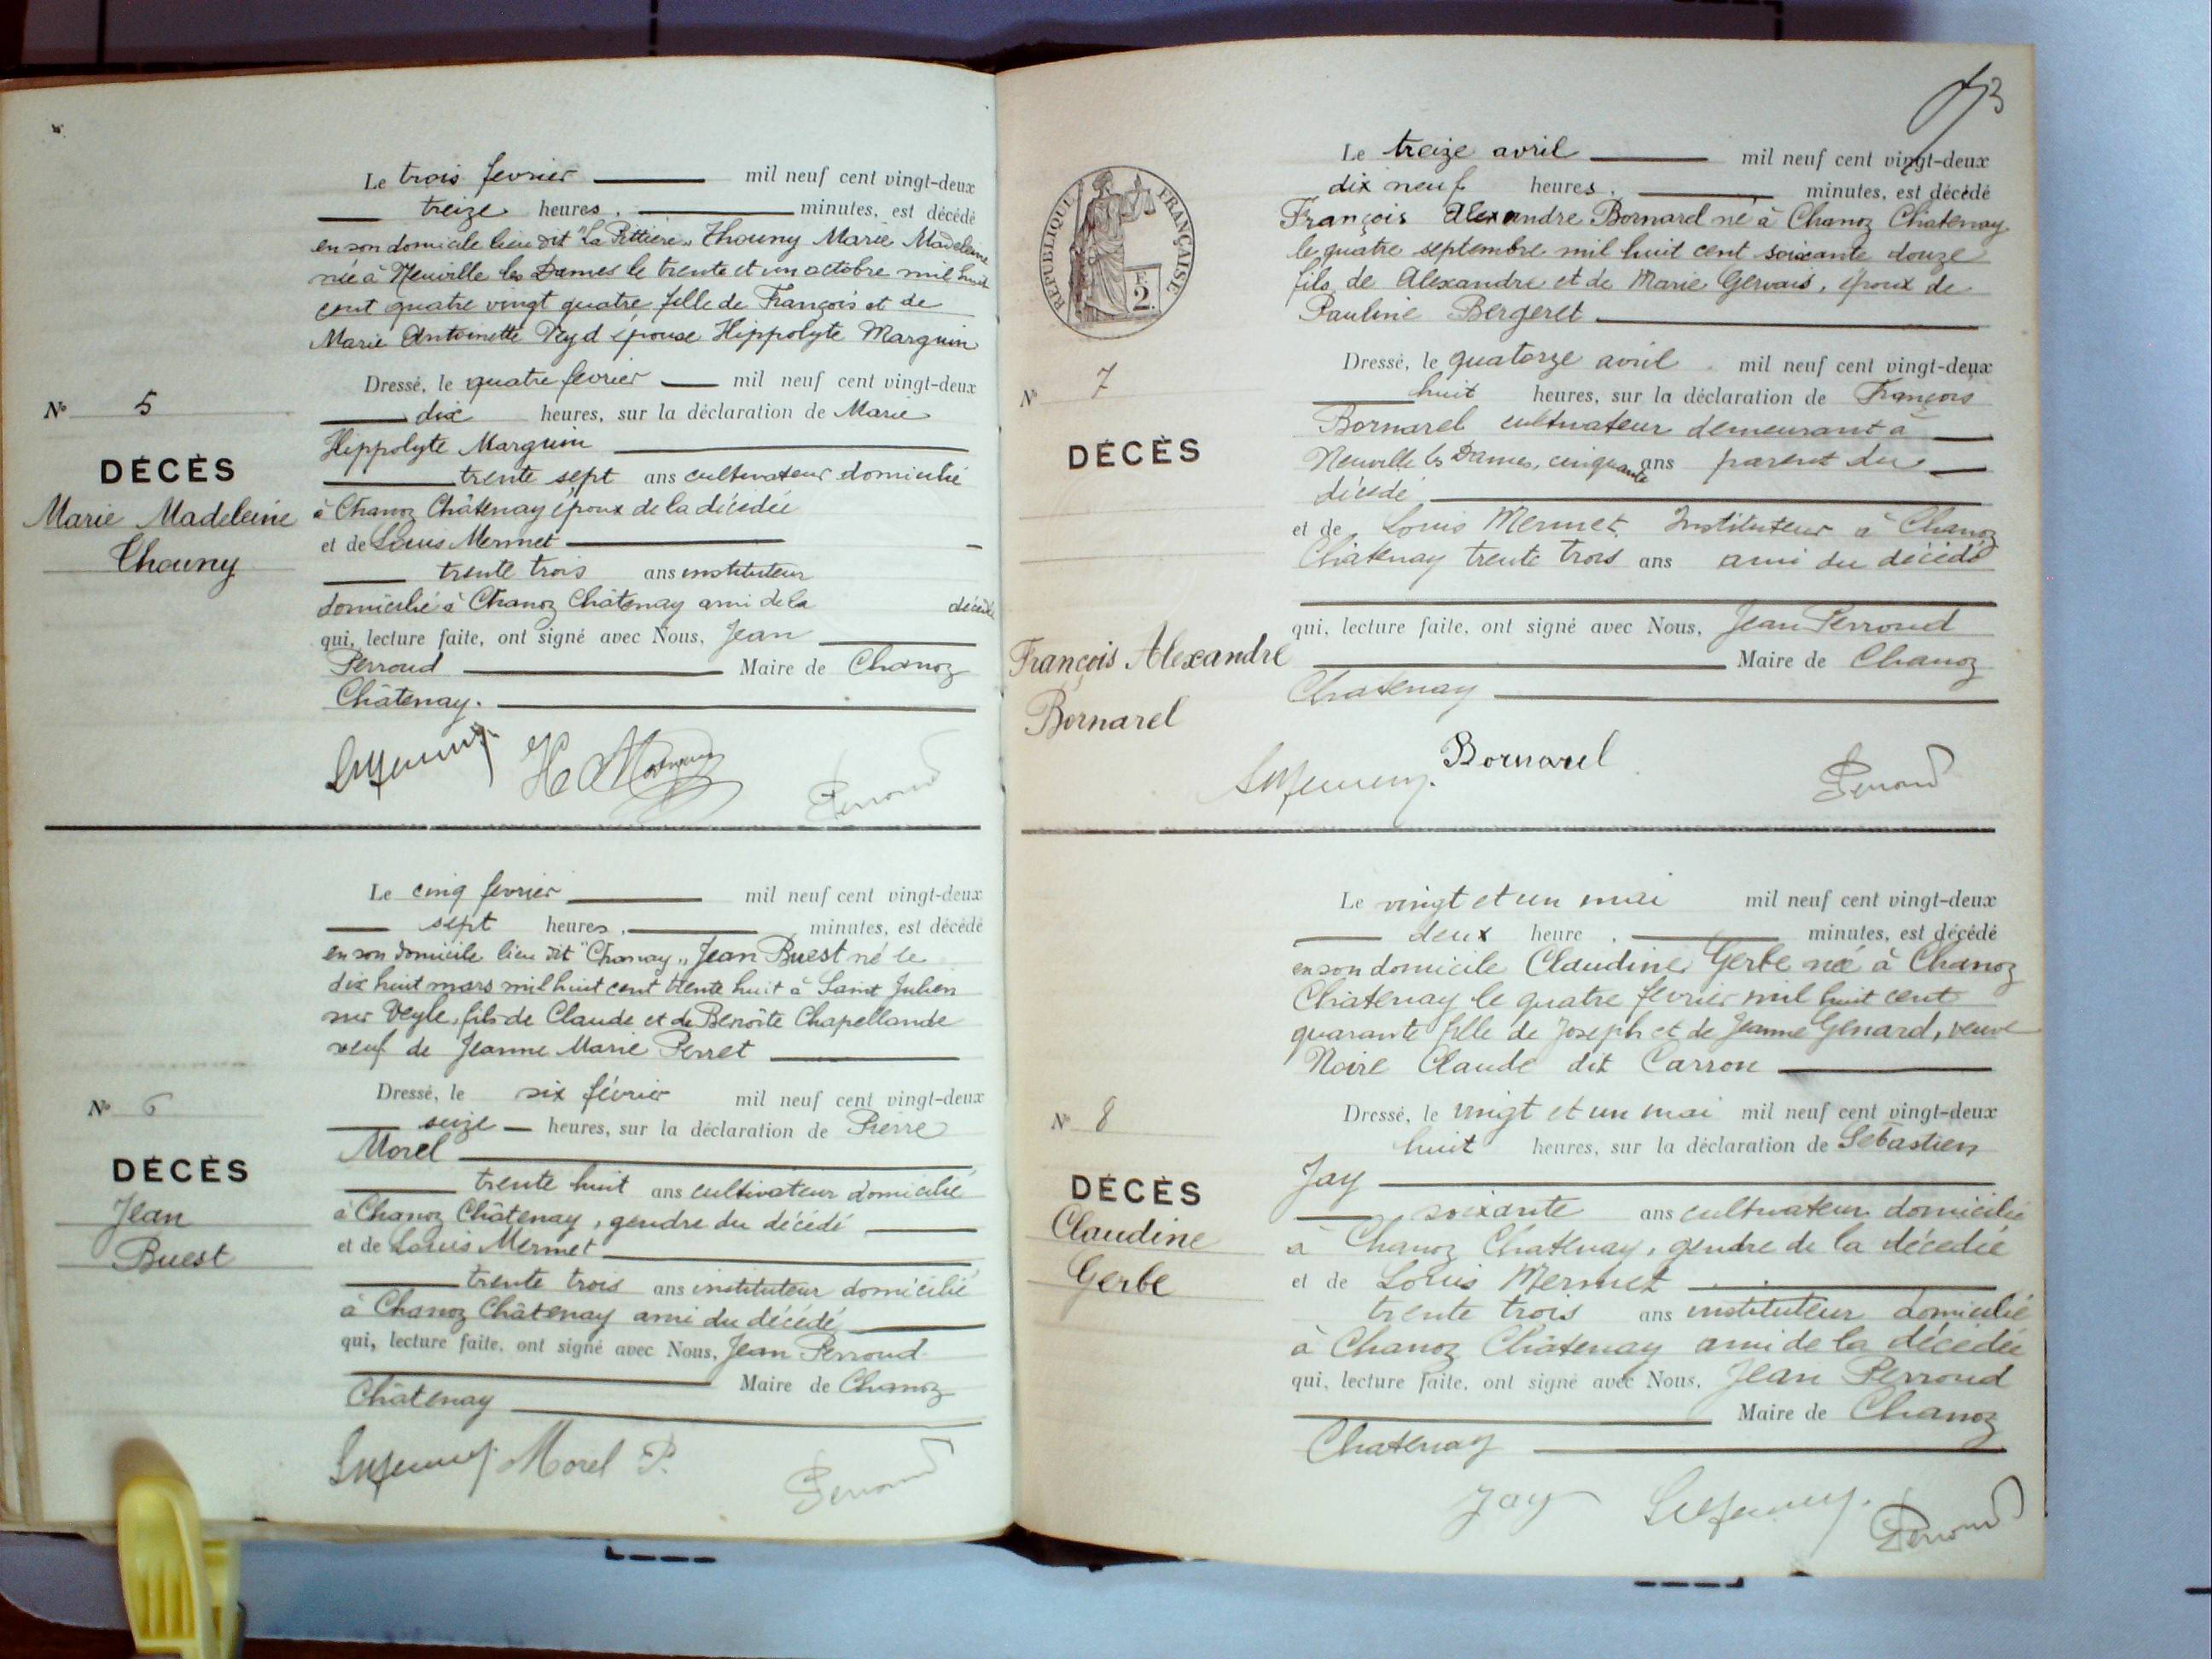 Le trois fevrier mil neuf cent vingt-deux
treize heures, minutes, est décédé
en son domicile lieu dit "La Pittière" Thouny Marie Madeleine
née à Neuville les Dames le trente et un octobre mil huit
cent quatre vingt quatre fille de François et de
Marie Antoinette épouse Hippolyte Marguin
Dressé, le quatre fevrier mil neuf cent vingt-deux
dix heures, sur la déclaration de Marie
Hippolyte Marguin
trente sept ans cultivateur domicilié
à Chanoz Châtenay époux de la décédée
et de Louis Mermet
trente trois ans instituteur
domicilié à Chanoz Châtenay ami de la décédée
qui, lecture faite, ont signé avec Nous, Jean
Perroud Maire de Chanoz
Châtenay.
Perroud
N° 5
DÉCÈS
Marie Madeleine
Thouny
Le cinq fevrier mil neuf cent vingt-deux
sept heures, minutes, est décédé
en son domicile lieu dit "Chanay" Jean Buest né le
dix huit mars mil huit cent trente huit à Saint Julien
sur Veyle, fils de Claude et de Benoîte Chapellande
veuf de Jeanne Marie Perret
Dressé, le six février mil neuf cent vingt-deux
seize heures, sur la déclaration de Pierre
Morel
trente huit ans cultivateur domicilié
à Chanoz Châtenay, gendre du décédé
et de Louis Mermet
trente trois ans instituteur domicilié
à Chanoz Châtenay ami du décédé
qui, lecture faite, ont signé avec Nous, Jean Perroud
Maire de Chanoz
Châtenay
Morel P.
Perroud
N° 6
DÉCÈS
Jean
Buest
RÉPUBLIQUE FRANÇAISE
F. 2
Le treize avril mil neuf cent vingt-deux
dix neuf heures, minutes, est décédé
François Alexandre Bornarel né à Chanoz Chatenay
le quatre septembre mil huit cent soixante douze
fils de Alexandre et de Marie Gervais, époux de
Pauline Bergeret
Dressé, le quatorze avril mil neuf cent vingt-deux
huit heures, sur la déclaration de François
Bornarel cultivateur demeurant à
Neuville les Dames, cinquante ans parent du
décédé
et de Louis Mermet Instituteur à Chanoz
Châtenay trente trois ans ami du décédé
qui, lecture faite, ont signé avec Nous, Jean Perroud
Maire de Chanoz
Chatenay
Bornarel
Perroud
N° 7
DÉCÈS
François Alexandre
Bornarel
Le vingt et un mai mil neuf cent vingt-deux
deux heure, minutes, est décédé
en son domicile Claudine Gerbe née à Chanoz
Châtenay le quatre fevrier mil huit cent
quarante fille de Joseph et de Jeanne Genard, veuve
Noire Claude dit Carron
Dressé, le vingt et un mai mil neuf cent vingt-deux
huit heures, sur la déclaration de Sébastien
Jay
soixante ans cultivateur domicilié
à Chanoz Chatenay, gendre de la décédée
et de Louis Mermet
trente trois ans instituteur domicilié
à Chanoz Châtenay ami de la décédée
qui, lecture faite, ont signé avec Nous, Jean Perroud
Maire de Chanoz
Chatenay
Jay
Perroud
N° 8
DÉCÈS
Claudine
Gerbe